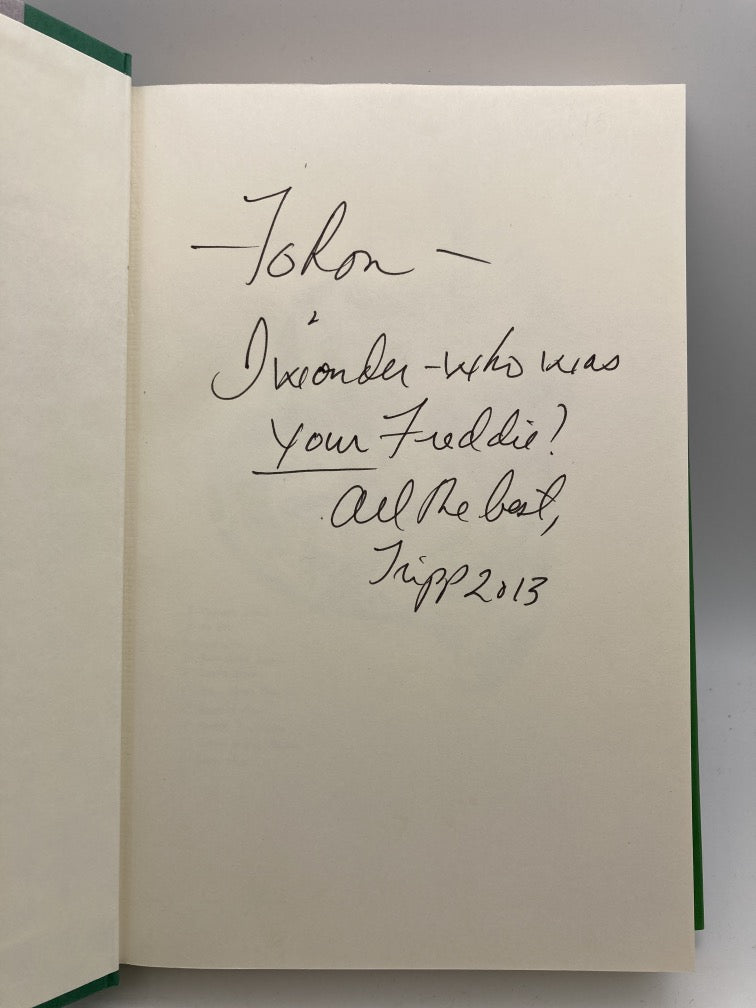 — To Ron —
I wonder - who was
your Freddie?
All the best,
Tripp 2013